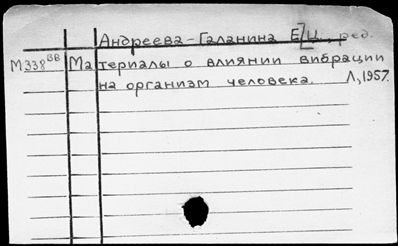 Андреева-Галанина Е.Ц., ред.
М338ВВ Материалы о влиянии вибрации
на организм человека. Л, 1957.